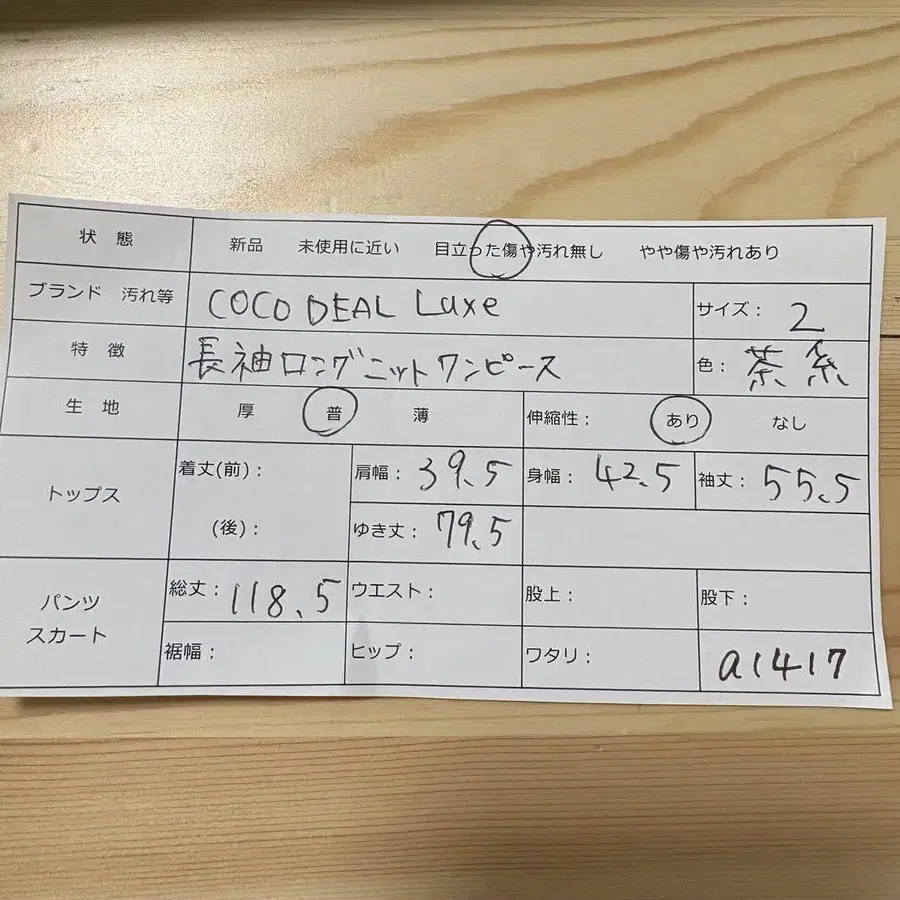 状 態 新品 未使用に近い 目立った傷や汚れ無し やや傷や汚れあり
ブランド 汚れ等 COCO DEAL Luxe サイズ： 2
特 徴 長袖ロングニットワンピース 色： 茶系
生 地 厚 普 薄 伸縮性： あり なし
トップス 着丈(前)： 肩幅： 39.5 身幅： 42.5 袖丈： 55.5
(後)： ゆき丈： 79.5
パンツ スカート 総丈： 118.5 ウエスト： 股上： 股下：
裾幅： ヒップ： ワタリ： a1417